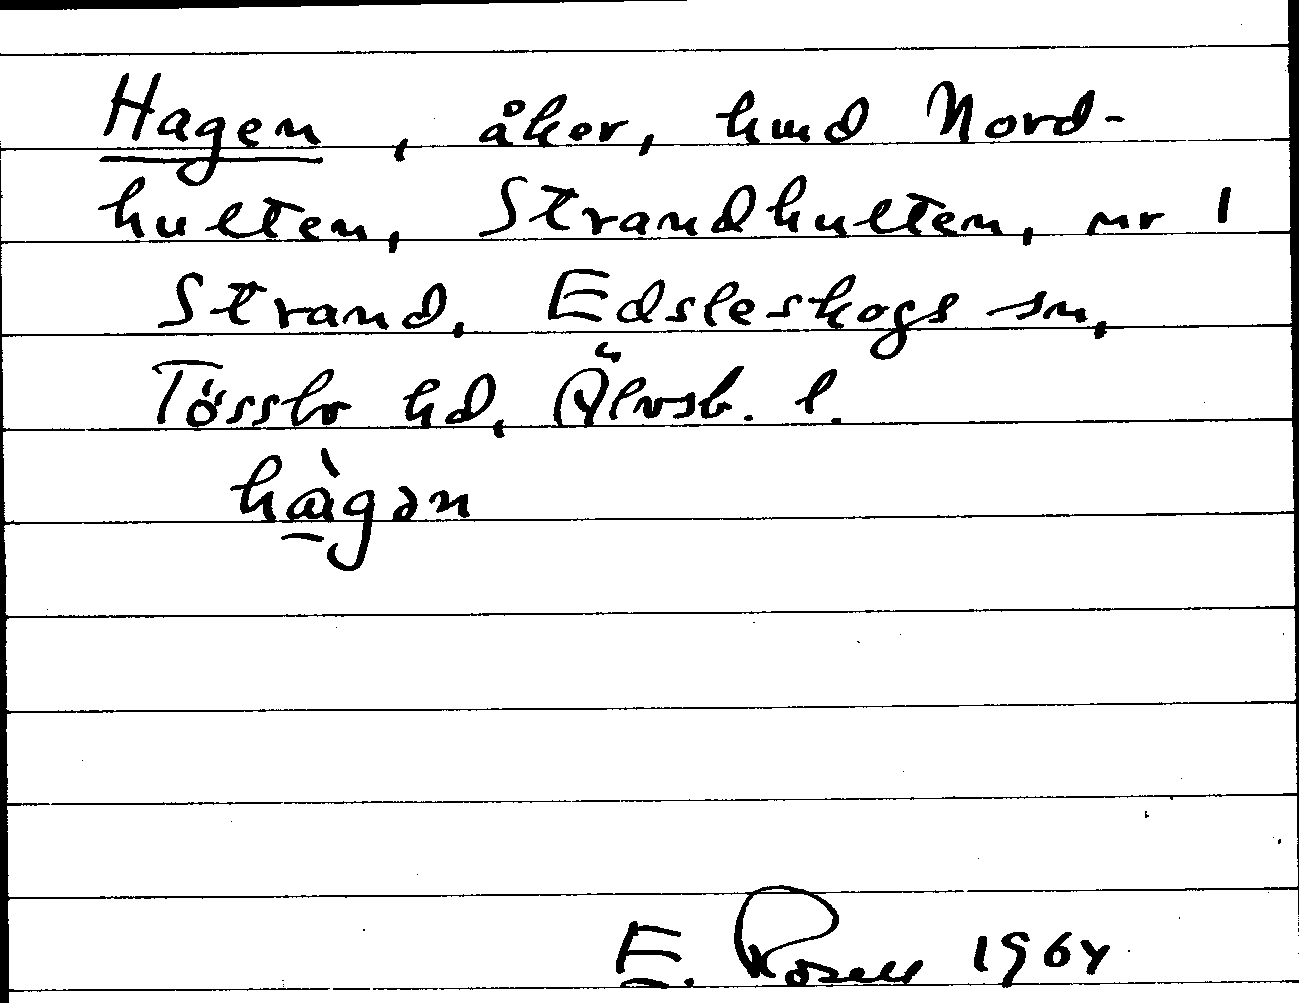 Hagen, åker, hmd Nord-
hulten, Strandhulten, nr 1
Strand, Edsleskogs sn,
Tössbo hd, Älvsb. l.
hàgən
E. Rosell 1964